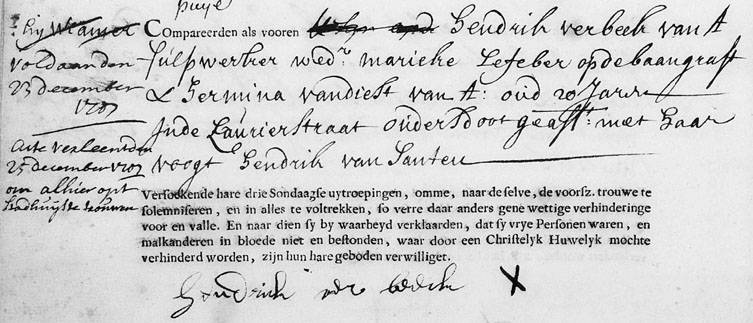 puye
Compareerden als vooren Hendrik verbeek van A
sulpwerker wedr. marieke Lefeber op de baangraft
& Hermina vandiest van A: oud 20 Jaren
Inde Laurierstraat ouders doot geast: met haar
voogt Hendrik van Santen
voldaan den
23 december
1707
Acte verleent den
25 december 1707
om alhier opt
stadhuijs te trouwen
Versoekende hare drie Sondaagse uytroepingen, omme, naar de selve, de voorsz. trouwe te
solemniseren, en in alles te voltrekken, so verre daar anders gene wettige verhinderinge
voor en valle. En naar dien sy by waarheyd verklaarden, dat sy vrye Personen waren, en
malkanderen in bloede niet en bestonden, waar door een Christelyk Huwelyk mochte
verhinderd worden, zijn hun hare geboden verwilliget.
Hendrick X